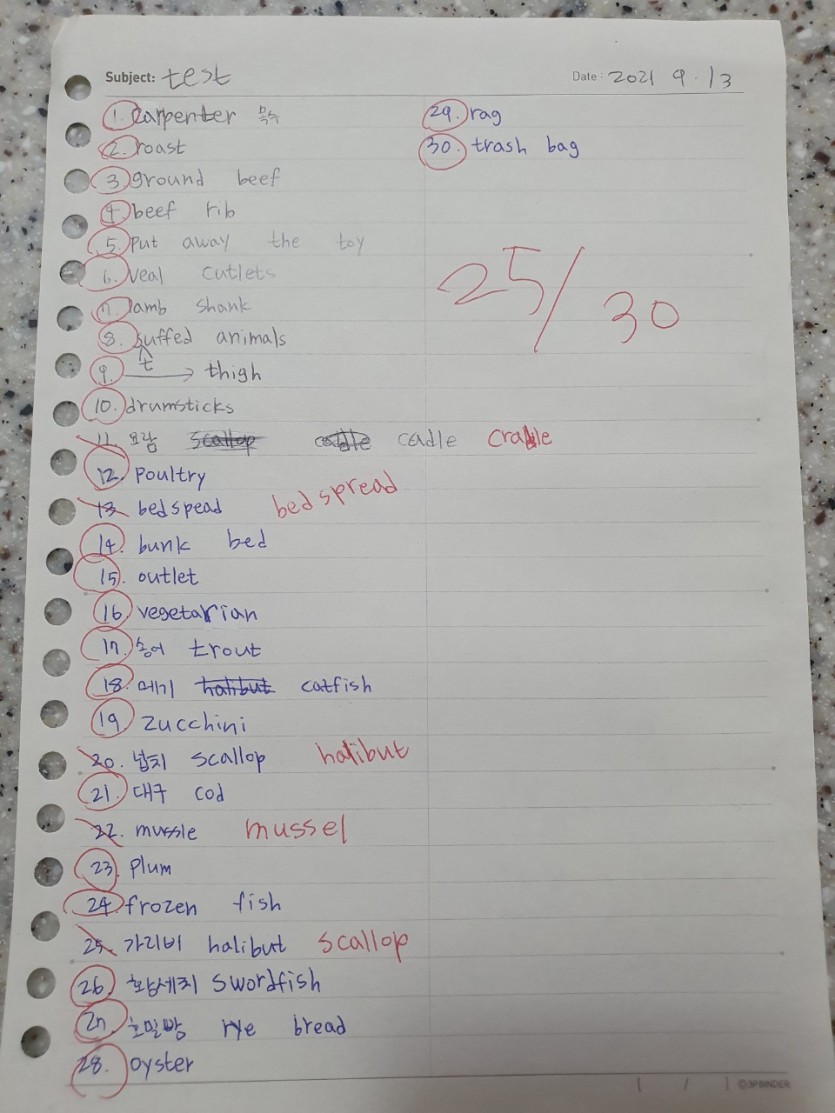 Subject: test
Date: 2021 9. 13
1. carpenter 목수
2. roast
3. ground beef
4. beef rib
5. Put away the toy
6. veal cutlets
7. lamb shank
8. suffed animals
t
9. → thigh
10. drumsticks
11. 요람 scallop cadle cradle
12. Poultry
13. bedspead bedspread
14. bunk bed
15. outlet
16. vegetarian
17. 송어 trout
18. 메기 halibut catfish
19. zucchini
20. 넙치 scallop halibut
21. 대구 cod
22. mussle mussel
23. Plum
24. frozen fish
25. 가리비 halibut scallop
26. 황새치 swordfish
27. 호밀빵 rye bread
28. oyster
29. rag
30. trash bag
25/30
1 / 1 ©3P BINDER